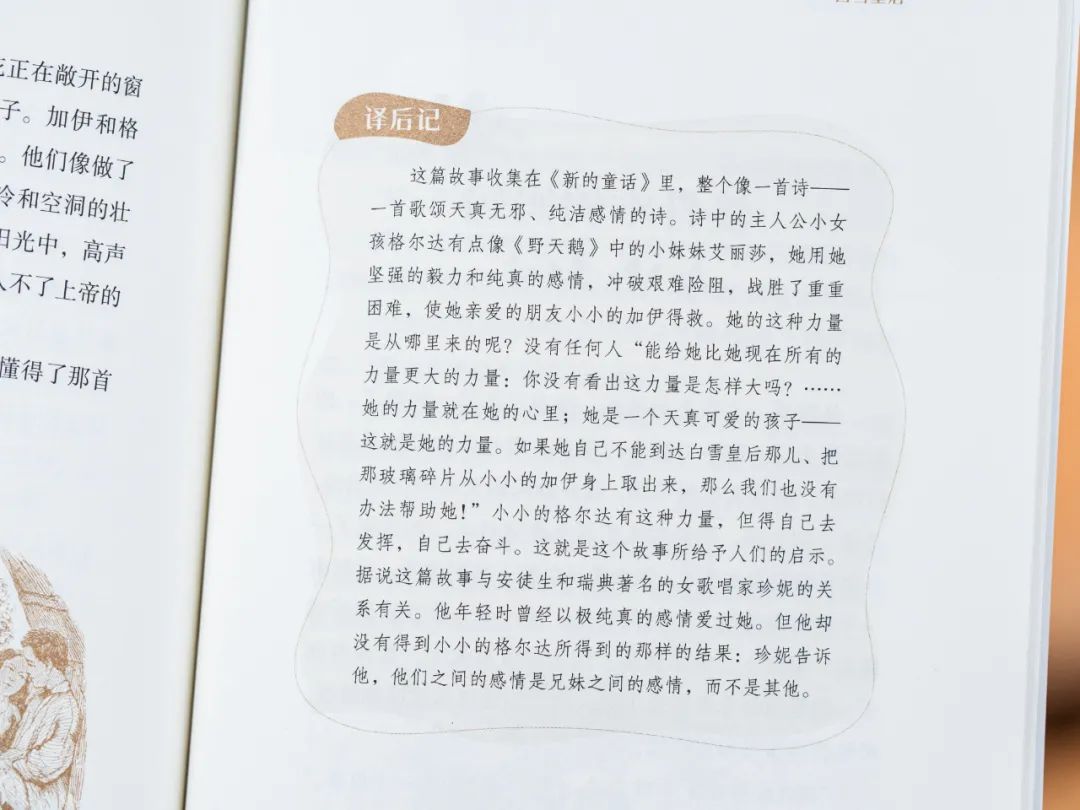 正在敞开的窗
子。加伊和格
。他们像做了
冷和空洞的壮
阳光中，高声
不了上帝的
懂得了那首
译后记
这篇故事收集在《新的童话》里，整个像一首诗——
一首歌颂天真无邪、纯洁感情的诗。诗中的主人公小女
孩格尔达有点像《野天鹅》中的小妹妹艾丽莎，她用她
坚强的毅力和纯真的感情，冲破艰难险阻，战胜了重重
困难，使她亲爱的朋友小小的加伊得救。她的这种力量
是从哪里来的呢？没有任何人“能给她比她现在所有的
力量更大的力量：你没有看出这力量是怎样大吗？……
她的力量就在她的心里；她是一个天真可爱的孩子——
这就是她的力量。如果她自己不能到达白雪皇后那儿、把
那玻璃碎片从小小的加伊身上取出来，那么我们也没有
办法帮助她！”小小的格尔达有这种力量，但得自己去
发挥，自己去奋斗。这就是这个故事所给予人们的启示。
据说这篇故事与安徒生和瑞典著名的女歌唱家珍妮的关
系有关。他年轻时曾经以极纯真的感情爱过她。但他却
没有得到小小的格尔达所得到的那样的结果：珍妮告诉
他，他们之间的感情是兄妹之间的感情，而不是其他。